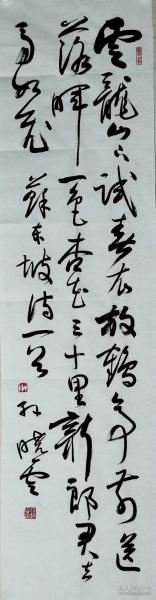 雲龍山下試春衣放鶴亭前送
落暉一色杏花三十里新郎君去
馬如飛
蘇東坡詩一首 孫曉雲